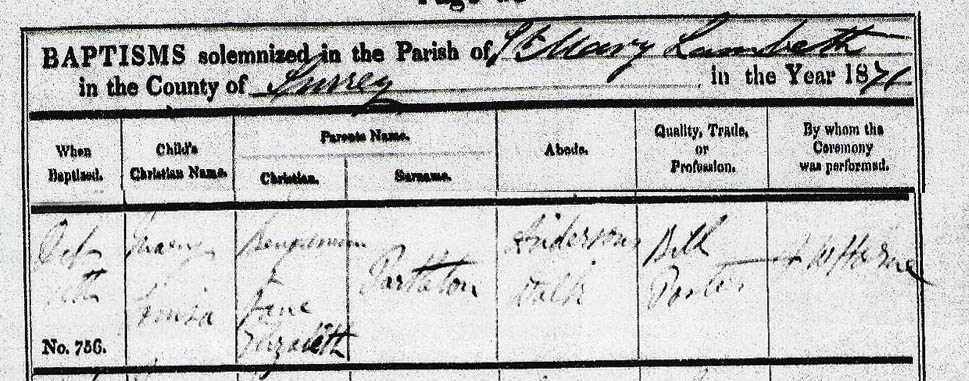 BAPTISMS solemnized in the Parish of St Mary Lambeth
in the County of Surrey in the Year 1871
When Baptized.
Child's Christian Name.
Parents Name.
Christian.
Surname.
Abode.
Quality, Trade, or Profession.
By whom the Ceremony was performed.
Mary
Louisa
Benjamin
Jane
Elizabeth
Partleton
Andersons
Walk
Bill
Poster
No. 756.